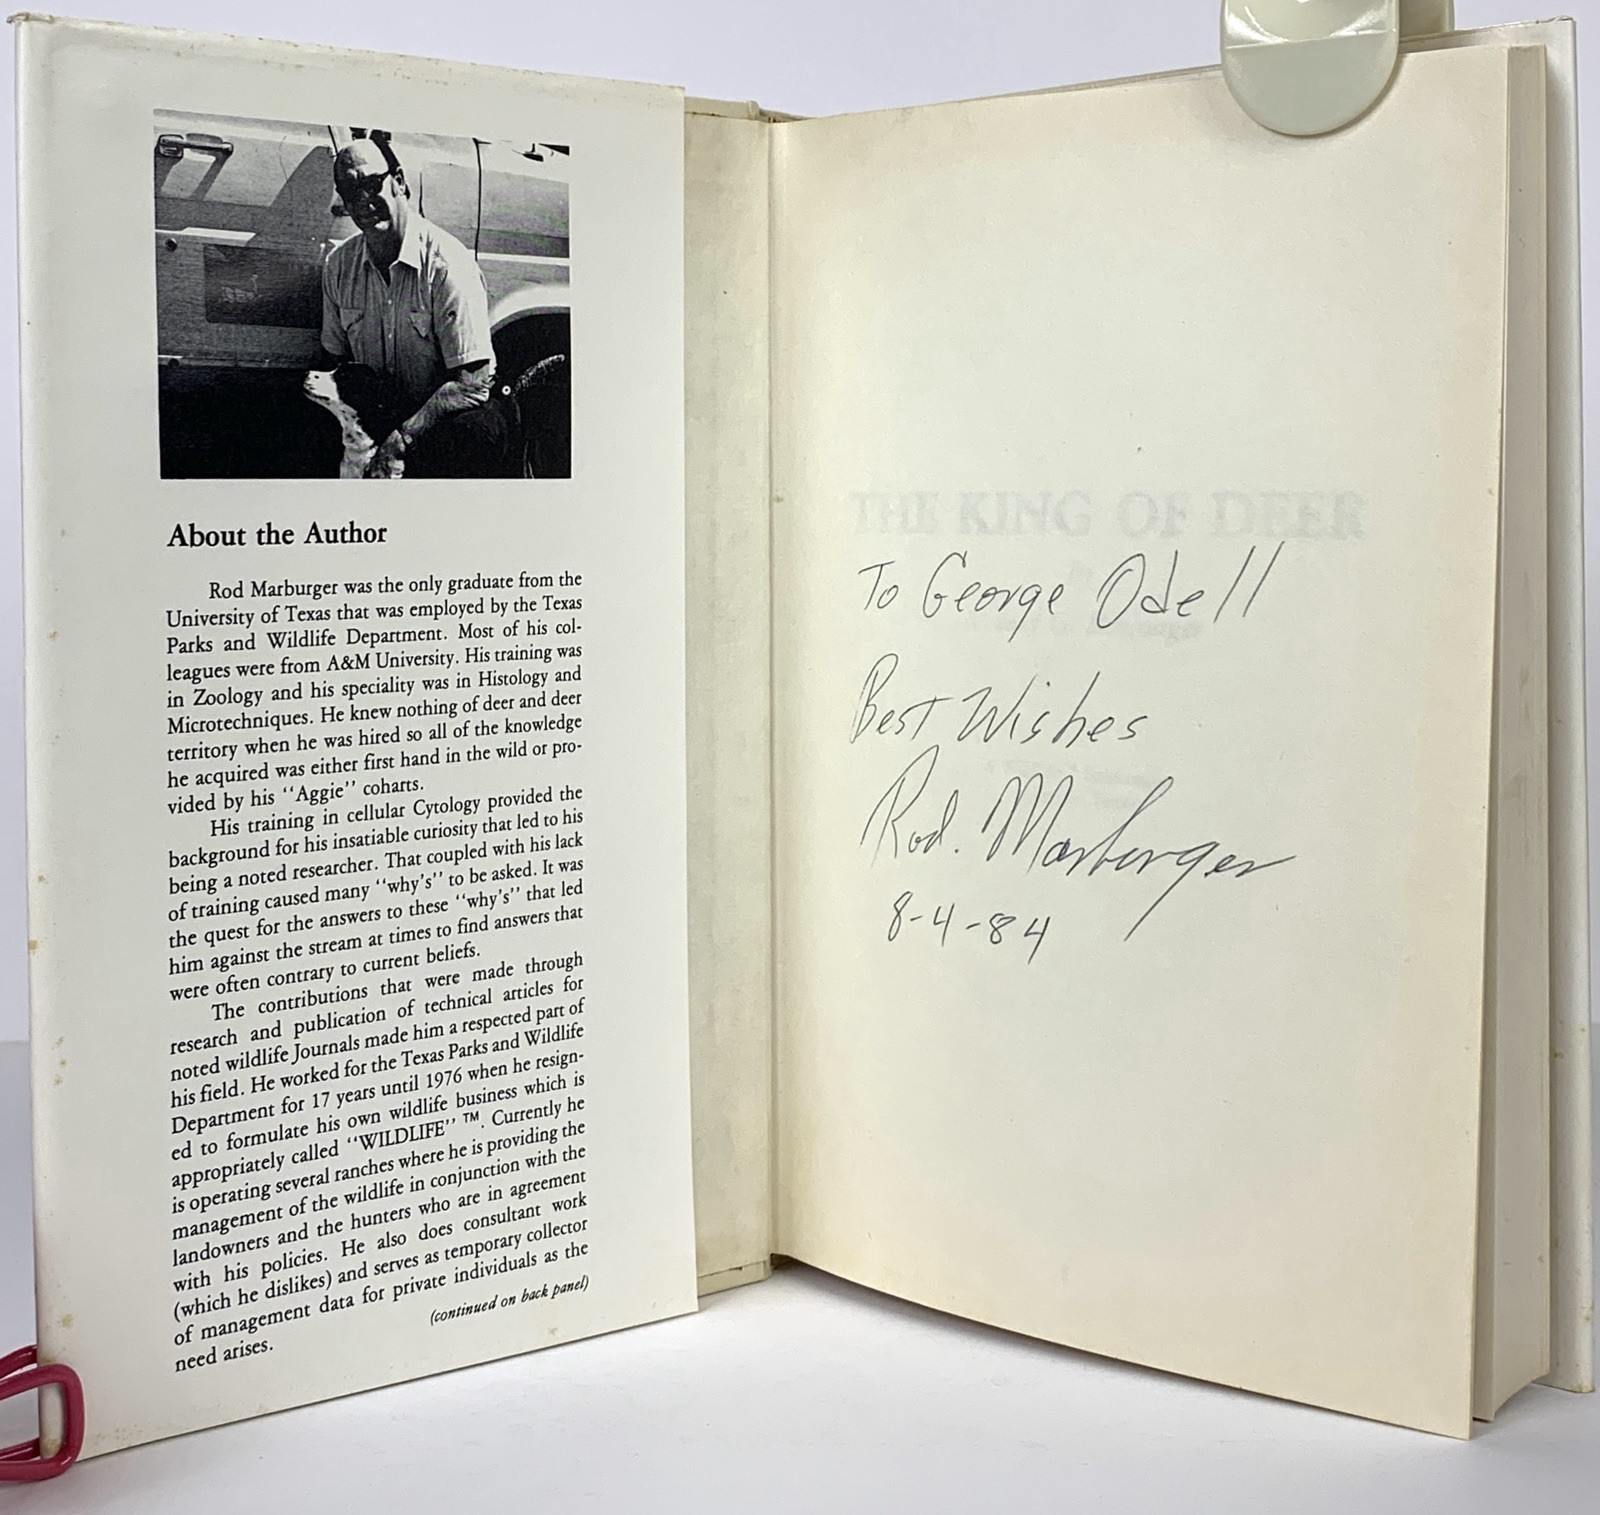 About the Author
Rod Marburger was the only graduate from the
University of Texas that was employed by the Texas
Parks and Wildlife Department. Most of his col-
leagues were from A&M University. His training was
in Zoology and his speciality was in Histology and
Microtechniques. He knew nothing of deer and deer
territory when he was hired so all of the knowledge
he acquired was either first hand in the wild or pro-
vided by his "Aggie" coharts.
His training in cellular Cytology provided the
background for his insatiable curiosity that led to his
being a noted researcher. That coupled with his lack
of training caused many "why's" to be asked. It was
the quest for the answers to these "why's" that led
him against the stream at times to find answers that
were often contrary to current beliefs.
The contributions that were made through
research and publication of technical articles for
noted wildlife Journals made him a respected part of
his field. He worked for the Texas Parks and Wildlife
Department for 17 years until 1976 when he resign-
ed to formulate his own wildlife business which is
appropriately called "WILDLIFE" ™. Currently he
is operating several ranches where he is providing the
management of the wildlife in conjunction with the
landowners and the hunters who are in agreement
with his policies. He also does consultant work
(which he dislikes) and serves as temporary collector
of management data for private individuals as the
need arises.
(continued on back panel)
THE KING OF DEER
To George Odell
Best Wishes
Rod. Marburger
8-4-84